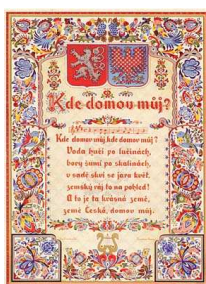 Kde domov můj?
Kde domov můj, kde domov můj?
Voda hučí po lučinách,
bory šumí po skalinách,
v sadě skví se jara květ,
zemský ráj to na pohled!
A to je ta krásná země,
země česká, domov můj,